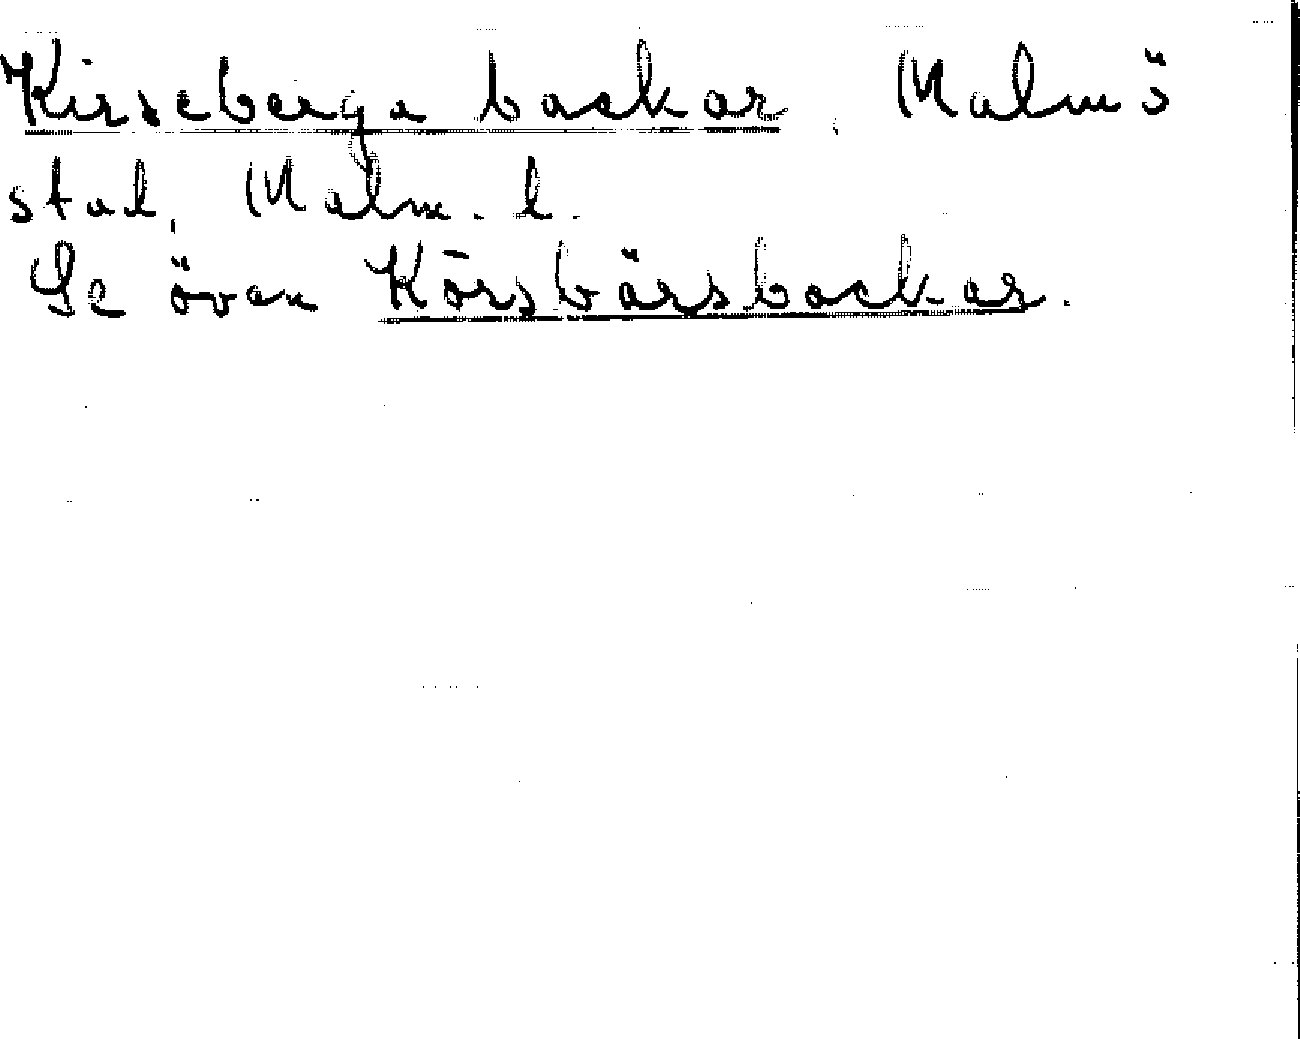 Kirseberga backar, Malmö
stad, Malm. l.
Se även Körsbärsbackar.